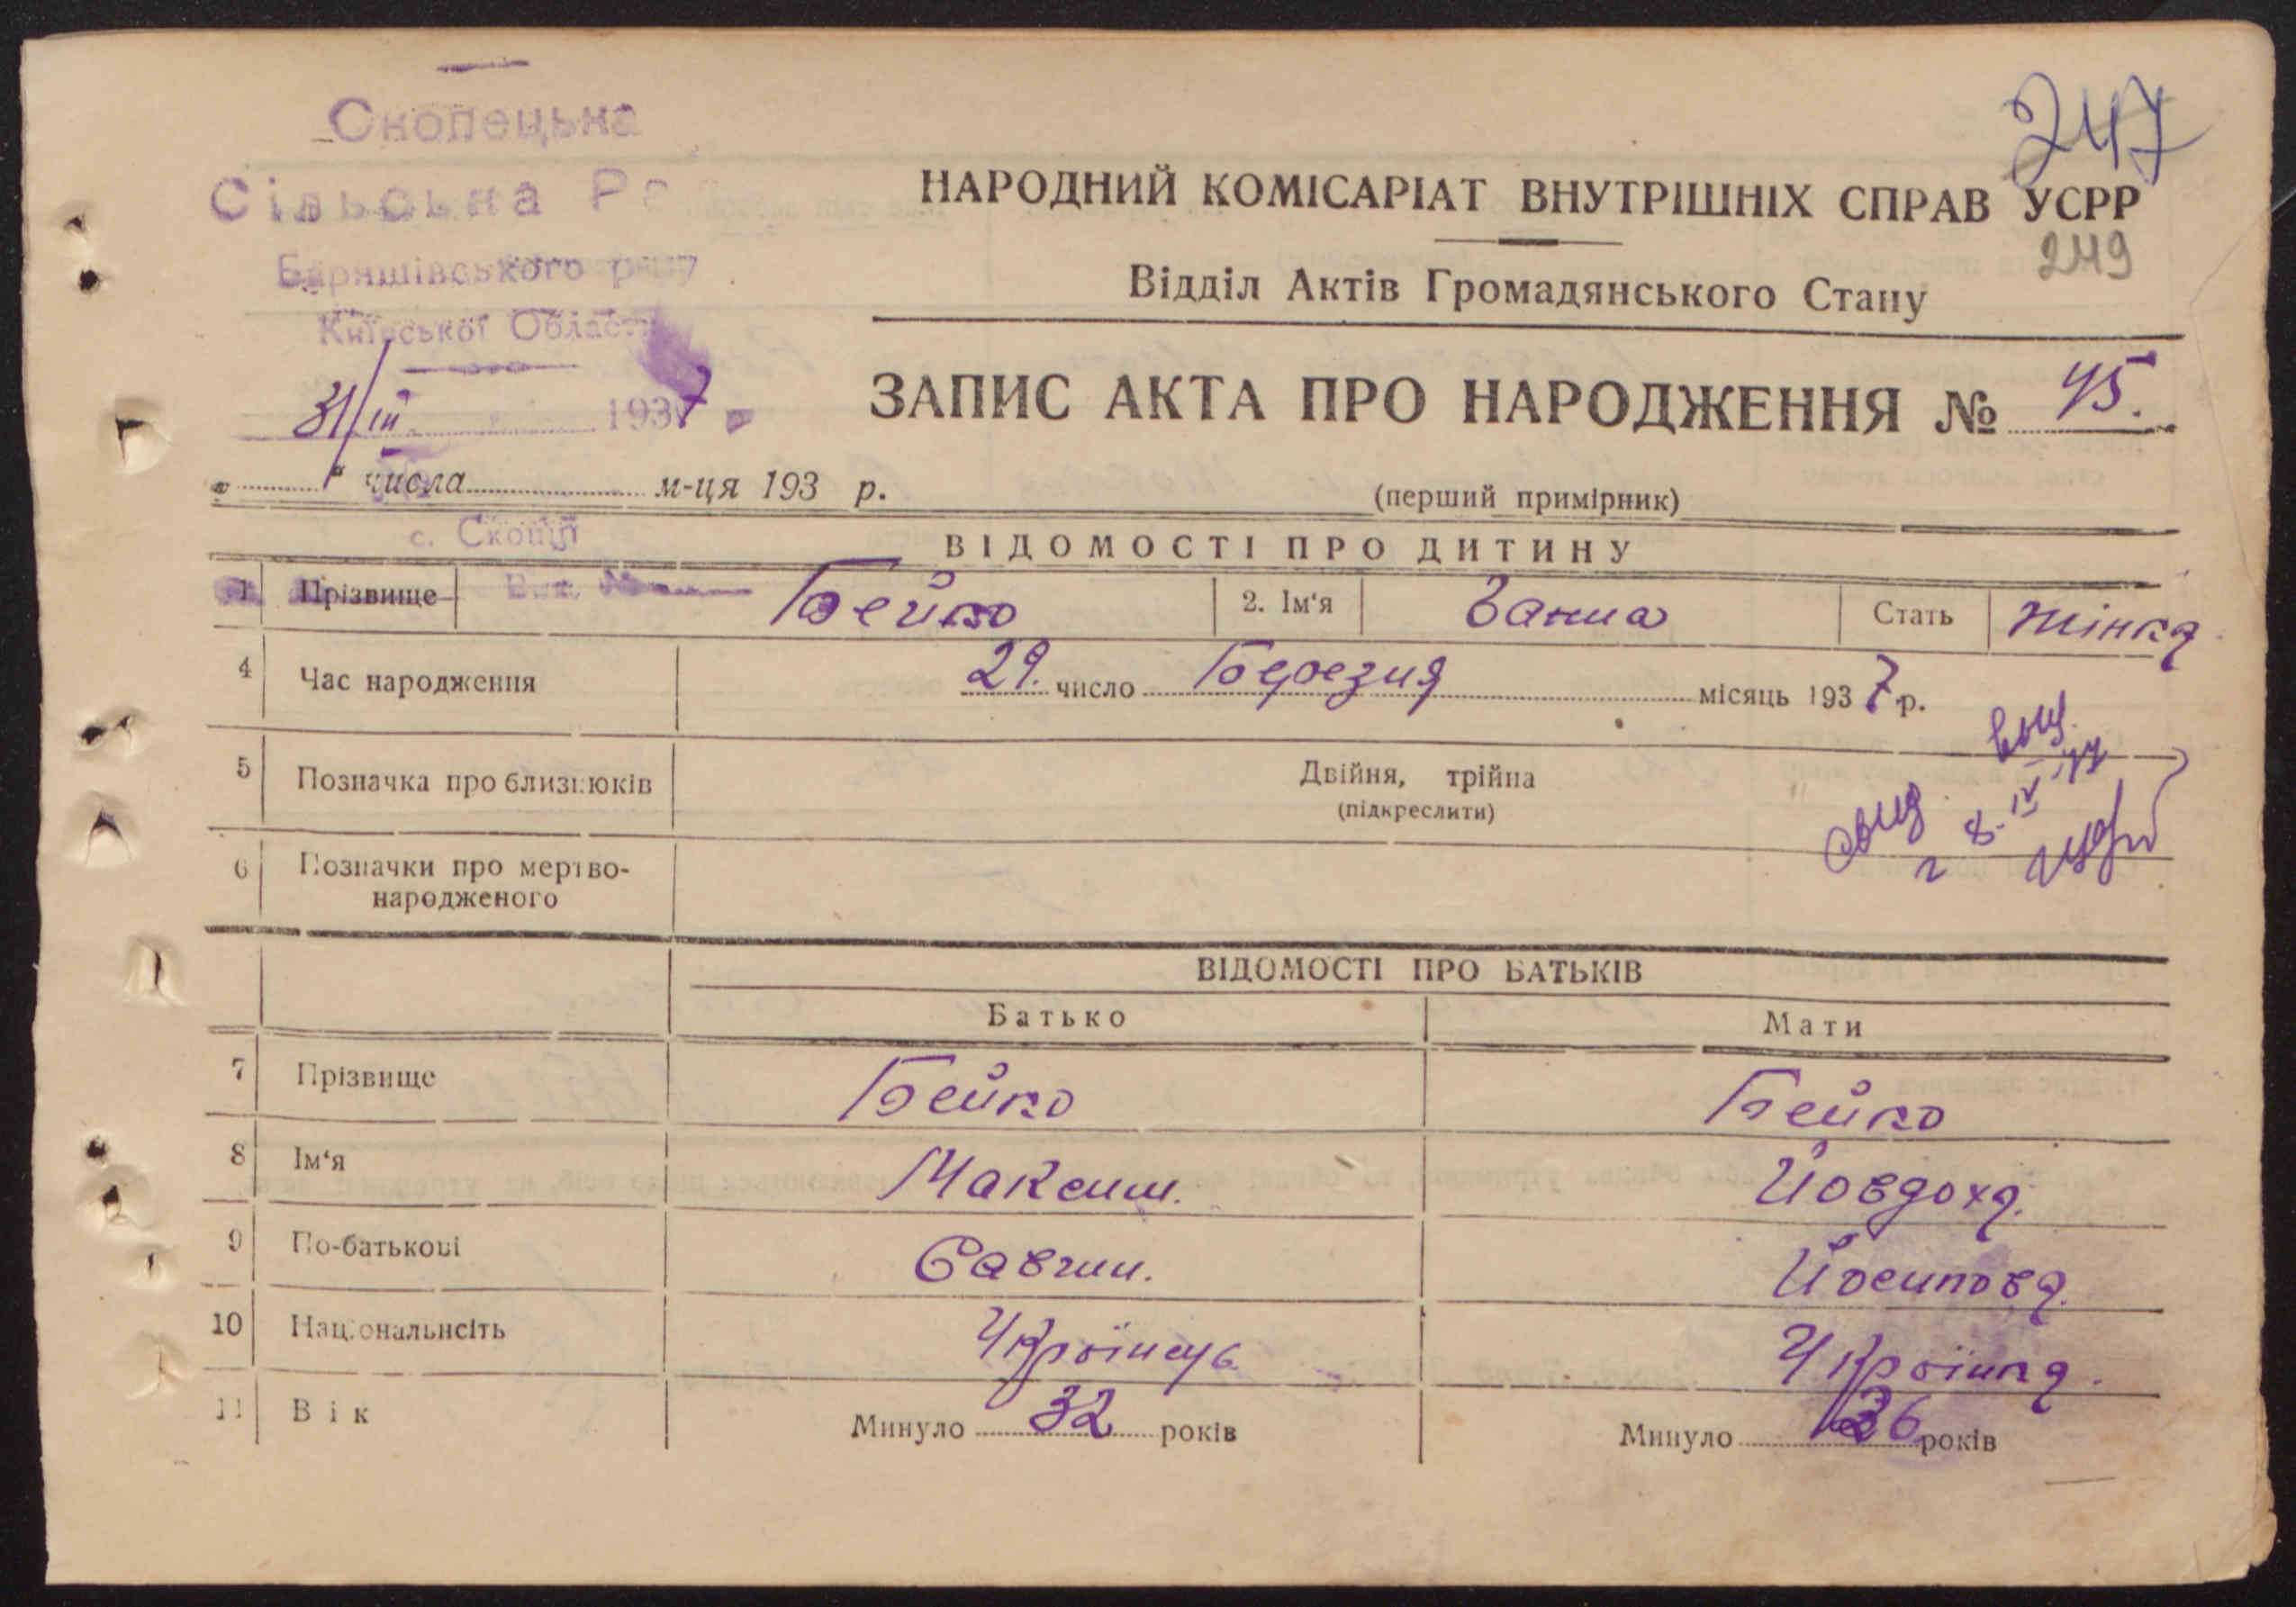 Скопецька
Сільська Ра
Баришівського р-ну
Київської Області
31/III 1937 р.
247
НАРОДНИЙ КОМІСАРІАТ ВНУТРІШНІХ СПРАВ УСРР
249
Відділ Актів Громадянського Стану
ЗАПИС АКТА ПРО НАРОДЖЕННЯ № 45.
" числа м-ця 193 р.
(перший примірник)
с. Скопці
ВІДОМОСТІ ПРО ДИТИНУ
1 Прізвище Бейко 2. Ім'я Ганна Стать Жінка
4 Час народження 29. число Березня місяць 1937 р.
5 Позначка про близнюків Двійня, трійна
(підкреслити)
8-IV-44
6 Позначки про мертво-
народженого
ВІДОМОСТІ ПРО БАТЬКІВ
Батько Мати
7 Прізвище Бейко Бейко
8 Ім'я Максим. Йовдоха.
9 По-батькові Савчин. Йосипова.
10 Національнсіть Українець Українка.
11 Вік Минуло 32 років Минуло 36 років